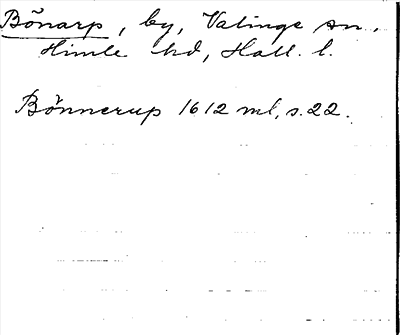 Bönarp, by, Valinge sn.
Himle hd, Hall. l.
Bönnerup 1612 ml, s. 22.